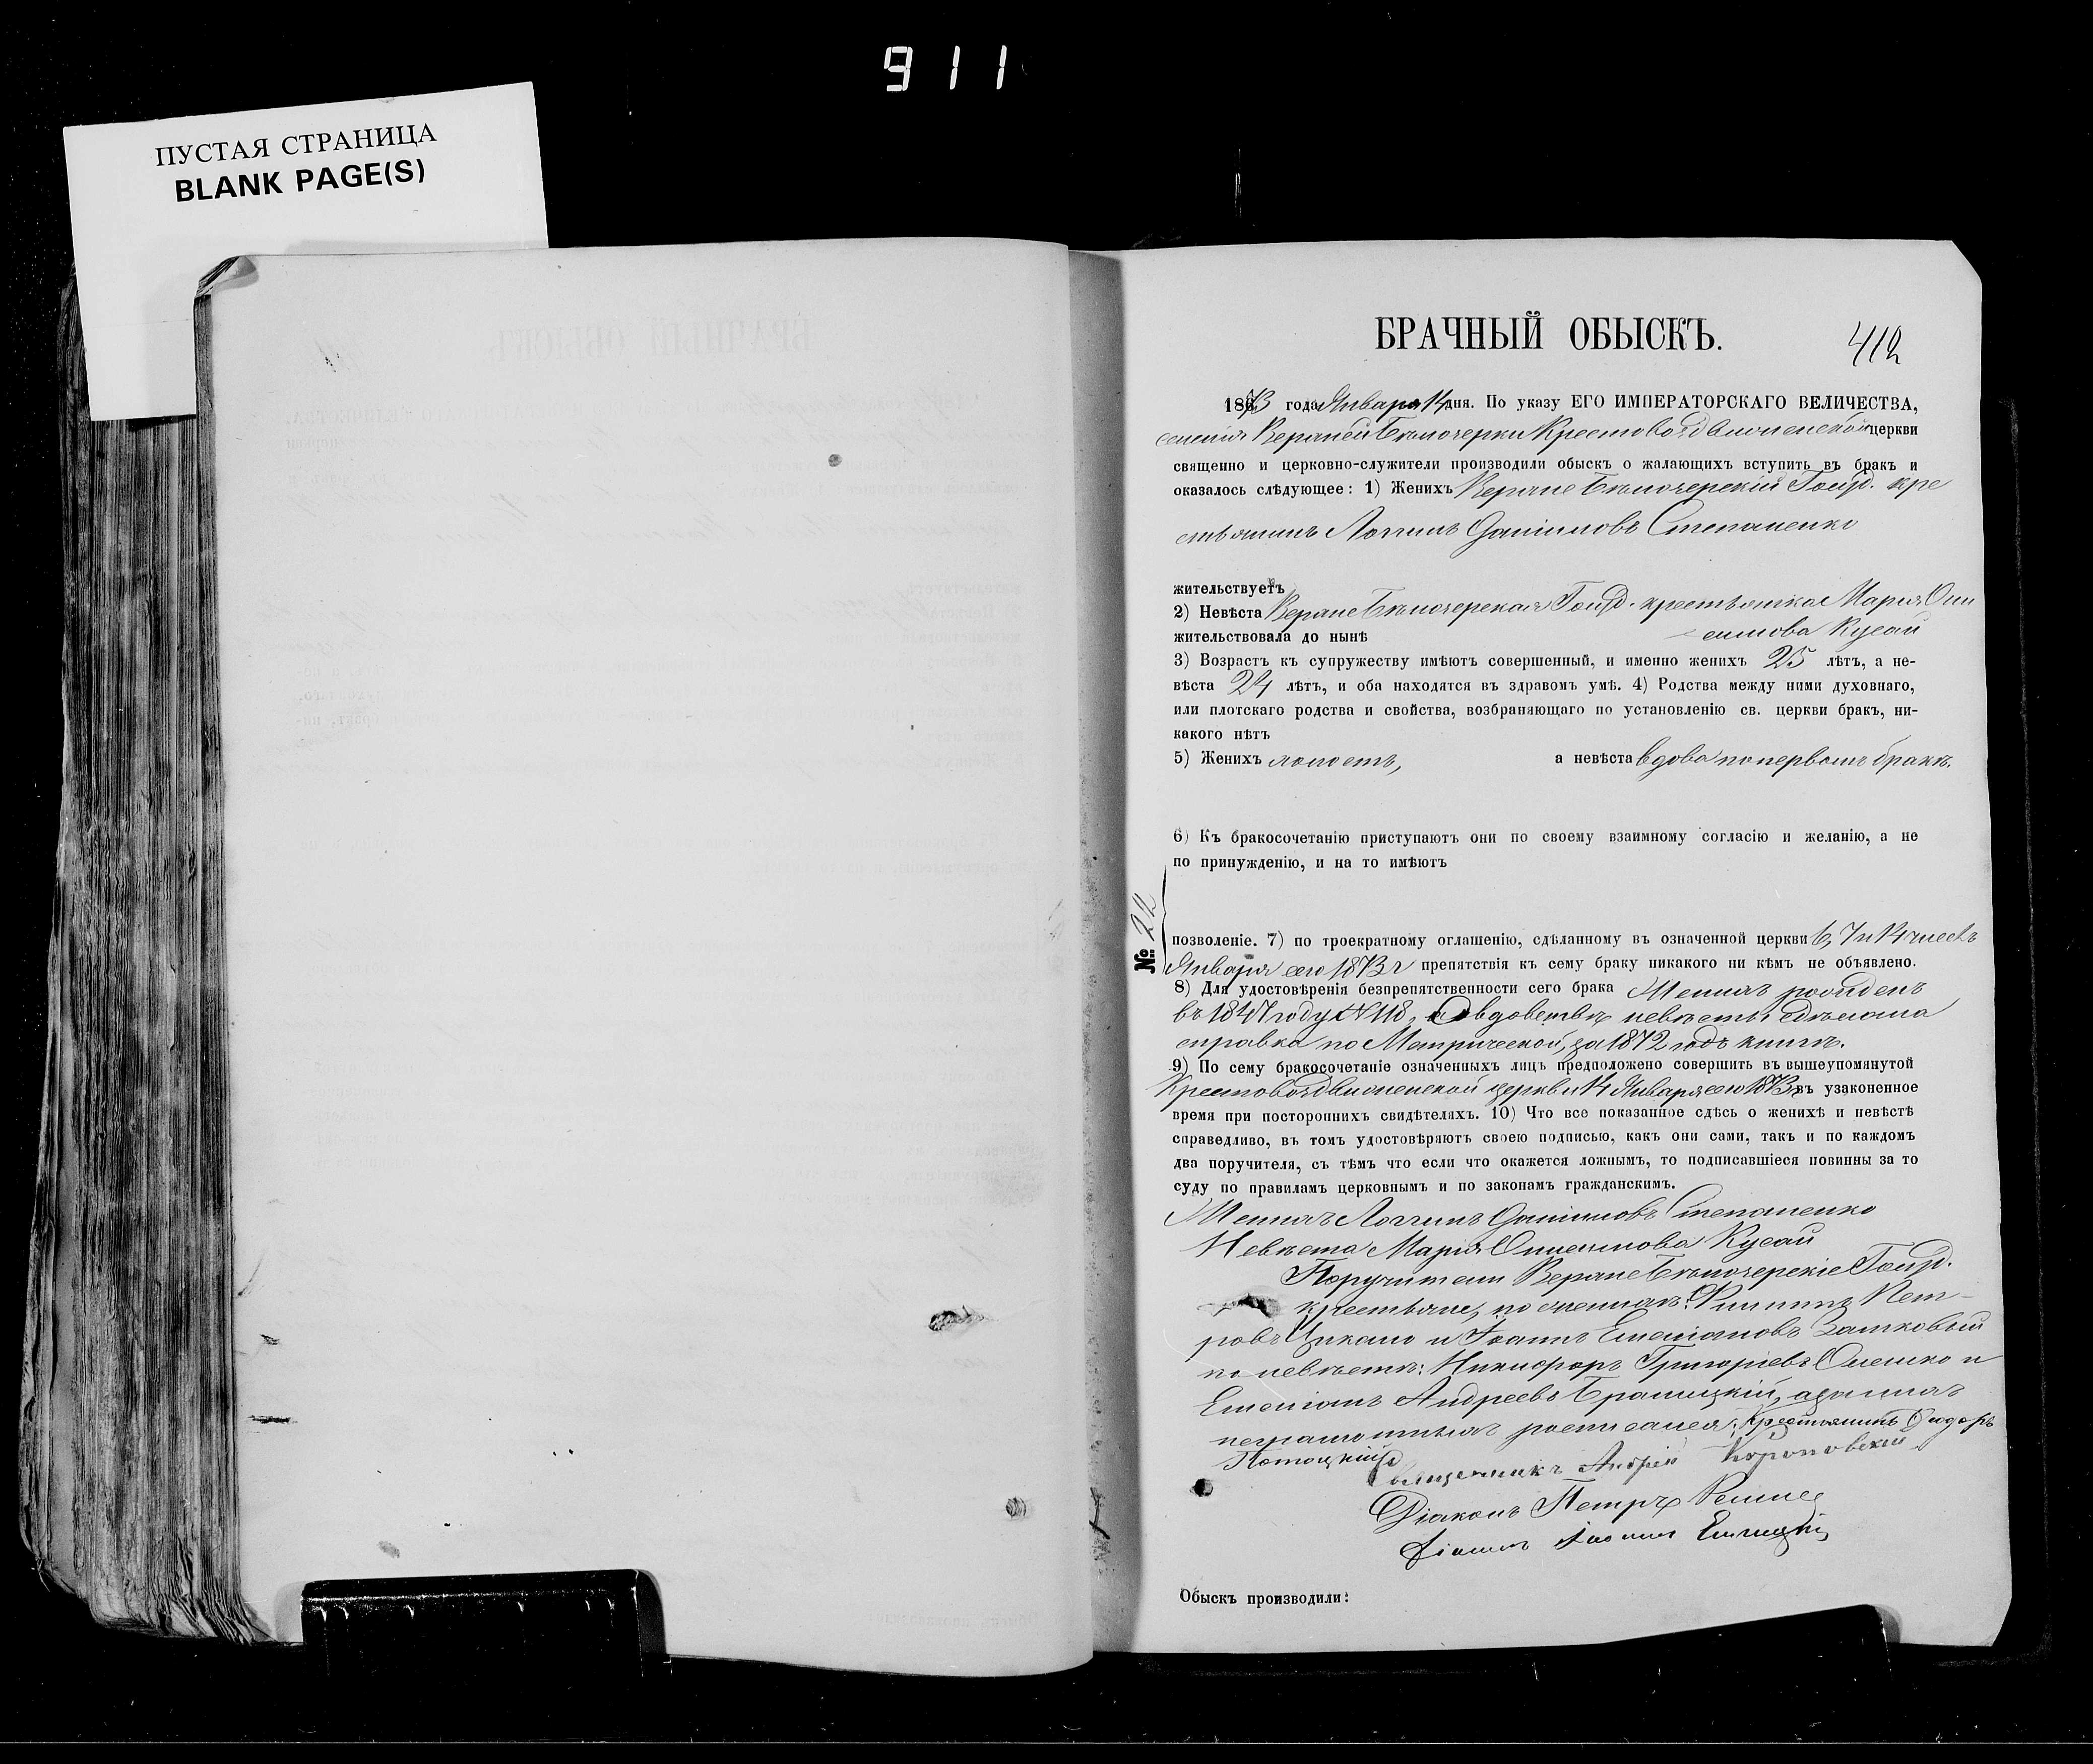 911
ПУСТАЯ СТРАНИЦА
BLANK PAGE(S)
БРАЧНЫЙ ОБЫСКЪ.
412
1873 года Января 14 дня. По указу ЕГО ИМПЕРАТОРСКАГО ВЕЛИЧЕСТВА,
селенія Верхней Бѣлозерки Крестовоздвиженской церкви
священно и церковно-служители производили обыскъ о жалающихъ вступить въ бракъ и
оказалось слѣдующее: 1) Женихъ Верхне Бѣлозерскій Госуд. кре
стьянинъ Логгинъ Даніиловъ Степаненко
жительствуетъ
2) Невѣста Верхне Бѣлозерская Госуд. крестьянка Марія Они
жительствовала до нынѣ симова Кусай
3) Возрастъ къ супружеству имѣютъ совершенный, и именно женихъ 25 лѣтъ, а не-
вѣста 24 лѣтъ, и оба находятся въ здравомъ умѣ. 4) Родства между ними духовнаго,
или плотскаго родства и свойства, возбраняющаго по установленію св. церкви бракъ, ни-
какого нѣтъ
5) Женихъ холостъ, а невѣста вдова по первомъ бракѣ.
6) Къ бракосочетанію приступаютъ они по своему взаимному согласію и желанію, а не
по принужденію, и на то имѣютъ
№
позволеніе. 7) по троекратному оглашенію, сдѣланному въ означенной церкви 6, 7 и 14 числъ
Января сего 1873 г препятствія къ сему браку никакого ни кѣмъ не объявлено.
8) Для удостовѣренія безпрепятственности сего брака Женихъ рожденъ
въ 1847 году № 118, а о вдовствѣ невѣсты сдѣлана
справка по Метрической, за 1872 годъ книгѣ.
9) По сему бракосочетаніе означенныхъ лицъ предположено совершить въ вышеупомянутой
Крестовоздвиженской церкви 14 Января сего 1873 г въ узаконенное
время при постороннихъ свидѣтеляхъ. 10) Что все показанное сдѣсь о женихѣ и невѣстѣ
справедливо, въ томъ удостовѣряютъ своею подписью, какъ они сами, такъ и по каждомъ
два поручителя, съ тѣмъ что если что окажется ложнымъ, то подписавшіеся повинны за то
суду по правиламъ церковнымъ и по законамъ гражданскимъ.
Женихъ Логгинъ Даніиловъ Степаненко
Невѣста Марія Онисимова Кусай
Поручители Верхне Бѣлозерскіе Госуд.
крестьяне, по женихѣ: Филиппъ Пет-
ровъ Цикало и Іоаннъ Емеліановъ Замковый
по невѣстѣ: Никифоръ Григоріевъ Олешко и
Емеліанъ Андреевъ Браницкій, а за нихъ
неграмотныхъ росписался: Крестьянинъ Ѳеодоръ
Потоцкій
Священникъ Андрей
Діаконъ Петръ
Іоаннъ
Обыскъ производили: